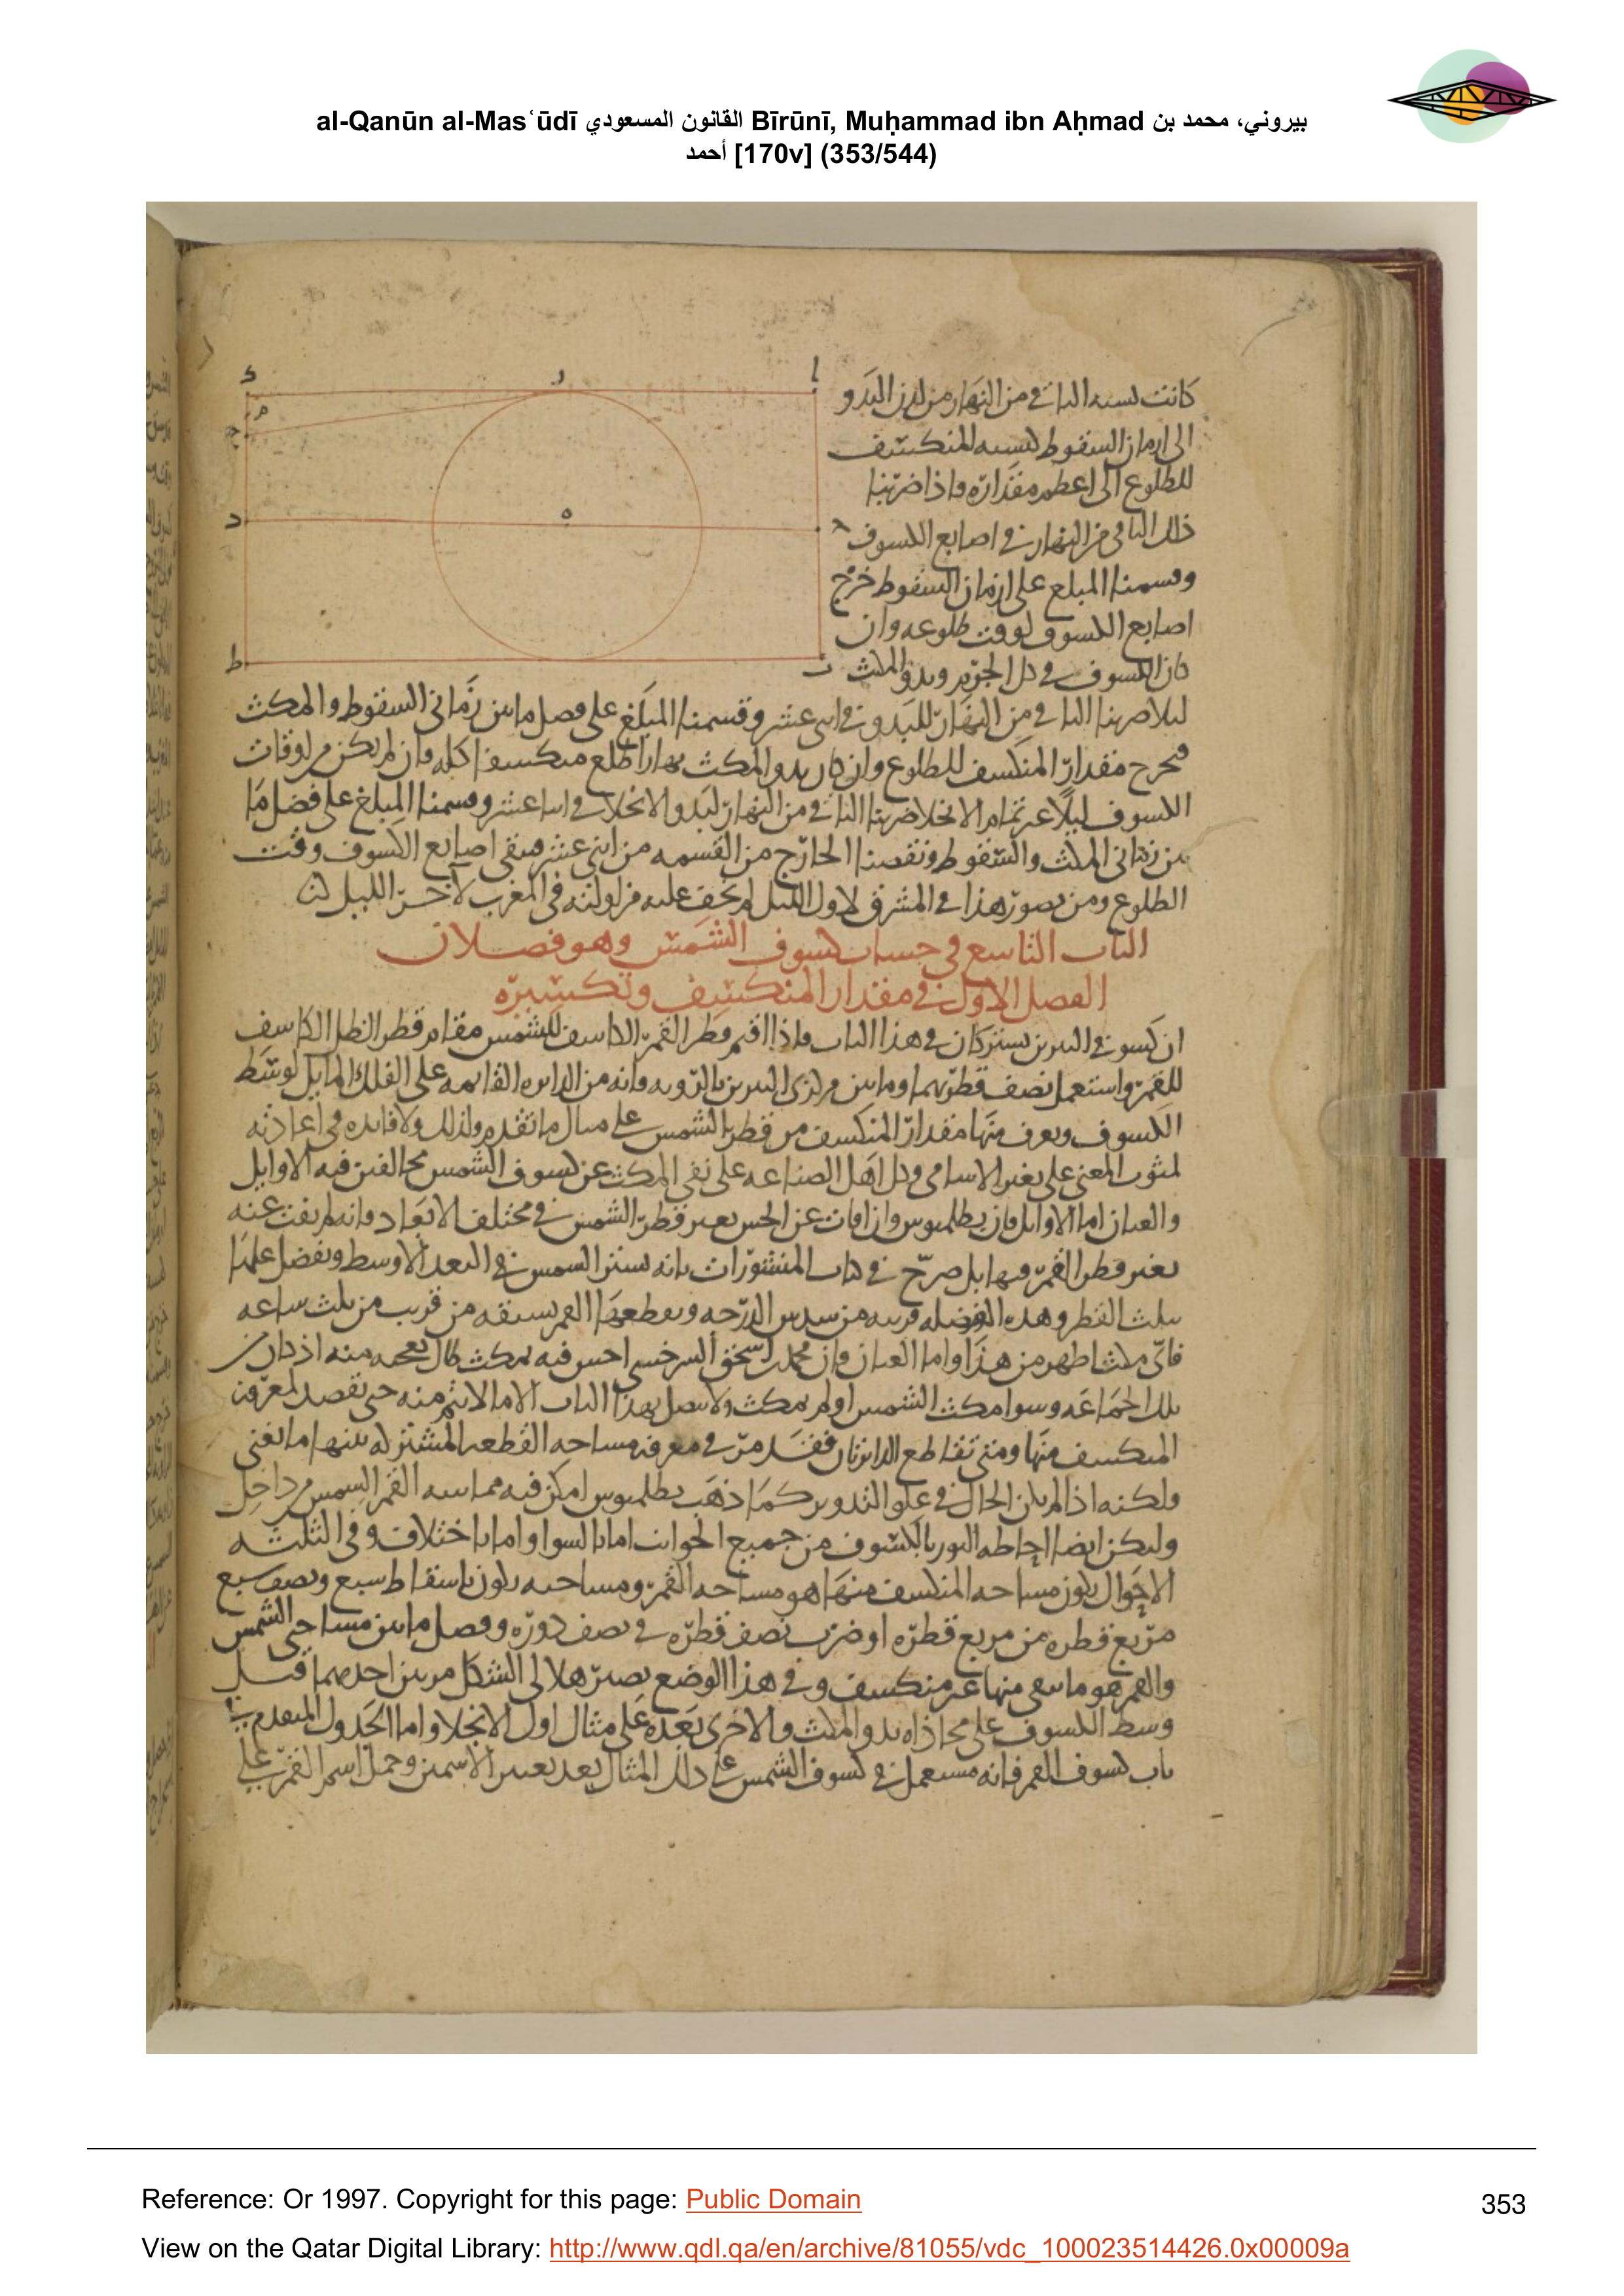 al-Qanūn al-Masʿūdī القانون المسعودي Bīrūnī, Muḥammad ibn Aḥmad بيروني، محمد بن
أحمد [170v] (353/544)
كانت نسبة الباقي من النهار من لدن البدو
الى ازمان السقوط كنسبة المنكسف
للطلوع الى اعظم مقداره واذا ضربنا
ذلك الباقي من النهار في اصابع الكسوف
وقسمنا المبلغ على ازمان السقوط خرج
اصابع الكسوف لوقت طلوعه وان
كان الكسوف في كل الجرم وبدو المكث
ليلا ضربنا الباقي من النهار للبدو في اثنى عشر وقسمنا المبلغ على فضل ما بين زماني السقوط والمكث
فيخرج مقدار المنكسف للطلوع وان كان بدو المكث نهارا طلع منكسفا كله وان لم يكن من اوقات
الكسوف ليلا غير تمام الانجلا ضربنا الباقي من النهار لبدو الانجلا في اثنا عشر وقسمنا المبلغ على فضل ما
بين زماني المكث والسقوط ونقصنا الخارج من القسمه من اثنى عشر فيبقى اصابع الكسوف وقت
الطلوع ومن تصور هذا في المشرق لاول الليل لم يخف عليه مزاولته في المغرب لآخر الليل
الباب التاسع في حساب كسوف الشمس وهو فصلان
الفصل الاول في مقدار المنكسف وتكسيره
ان كسوفي النيرين يشتركان في هذا الباب واذا اقيم قطر القمر الكاسف للشمس مقام قطر الظل الكاسف
للقمر واستعمل نصف قطريهما وما بين مركزى النيرين بالرويه وانه من الدايره القايمه على الفلك المايل لوسط
الكسوف ويعرف منها مقدار المنكسف من قطر الشمس على مثال ما تقدم ولذلك ولا فايده في اعادته
لثبوت المعنى على تغير الاسامي وكل اهل الصناعه على نفي المكث عن كسوف الشمس مخالفين فيه الاوايل
والعيان اما الاوايل فان بطلميوس وان فات عن الحس تغير قطر الشمس في مختلف الابعاد فانه لم يفت عنه
تغير قطر القمر فيها بل صرح في كتاب المنشورات بانه يستر الشمس في البعد الاوسط ويفضل عليها
بثلث القطر وهذه الفضله قريبه من سدس الدرجه ويقطعها القمر بسبقه من قريب من ثلث ساعه
فاى مكث اظهر من هذا واما العيان فان محمد بن اسحق السرخسي احس فيه بمكث طال تعجبه منه اذ كان
تلك الجماعه وسوا مكث الشمس او لم يمكث ولا يتصل بهذا الباب الا ما لا يتم منه حتى نقصد لمعرفة
المنكسف منها ومتى تقاطع الدايرتان فقد مر في معرفه مساحه القطعه المشتركه بينهما ما يغني
ولكنه اذا لم يكن الحال في علو التدوير كما ذهب بطلميوس امكن فيه مماسه القمر الشمس من داخل
وليكن ايضا احاطه النور بالكسوف من جميع الجوانب اما بالسوا واما باختلاف وفي الثلثه
الاحوال يكون مساحه المنكسف منها هو مساحه القمر ومساحته يكون باسقاط سبع ونصف سبع
مربع قطره من مربع قطره او ضرب نصف قطره في نصف دوره وفضل ما بين مساحتى الشمس
والقمر هو ما بقى منها غير منكسف وفي هذا الوضع يصير هلالى الشكل مرتين احديهما قبل
وسط الكسوف على محاذاه بدو المكث والاخرى بعده على مثال اول الانجلا واما الجدول المتقدم في
باب كسوف القمر فانه مستعمل في كسوف الشمس على ذلك المثال بعد تغيير الاسمين وحمل اسم القمر على
Reference: Or 1997. Copyright for this page: Public Domain
353
View on the Qatar Digital Library: http://www.qdl.qa/en/archive/81055/vdc_100023514426.0x00009a